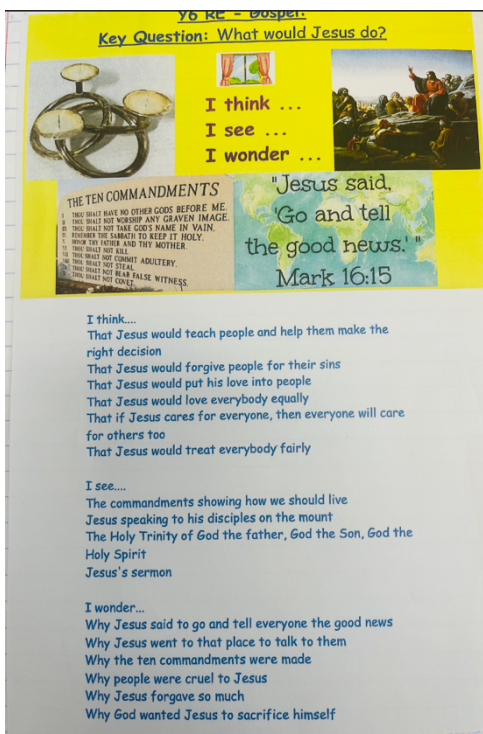 Y6 RE – Gospel:
Key Question: What would Jesus do?
I think ...
I see ...
I wonder ...
THE TEN COMMANDMENTS
I THOU SHALT HAVE NO OTHER GODS BEFORE ME.
II THOU SHALT NOT WORSHIP ANY GRAVEN IMAGE.
III THOU SHALT NOT TAKE GOD'S NAME IN VAIN.
REMEMBER THE SABBATH TO KEEP IT HOLY.
HONOR THY FATHER AND THY MOTHER.
THOU SHALT NOT KILL
THOU SHALT NOT COMMIT ADULTERY.
THOU SHALT NOT STEAL
THOU SHALT NOT BEAR FALSE WITNESS.
THOU SHALT NOT COVET.
"Jesus said,
'Go and tell
the good news.' "
Mark 16:15
I think....
That Jesus would teach people and help them make the
right decision
That Jesus would forgive people for their sins
That Jesus would put his love into people
That Jesus would love everybody equally
That if Jesus cares for everyone, then everyone will care
for others too
That Jesus would treat everybody fairly
I see....
The commandments showing how we should live
Jesus speaking to his disciples on the mount
The Holy Trinity of God the father, God the Son, God the
Holy Spirit
Jesus's sermon
I wonder...
Why Jesus said to go and tell everyone the good news
Why Jesus went to that place to talk to them
Why the ten commandments were made
Why people were cruel to Jesus
Why Jesus forgave so much
Why God wanted Jesus to sacrifice himself